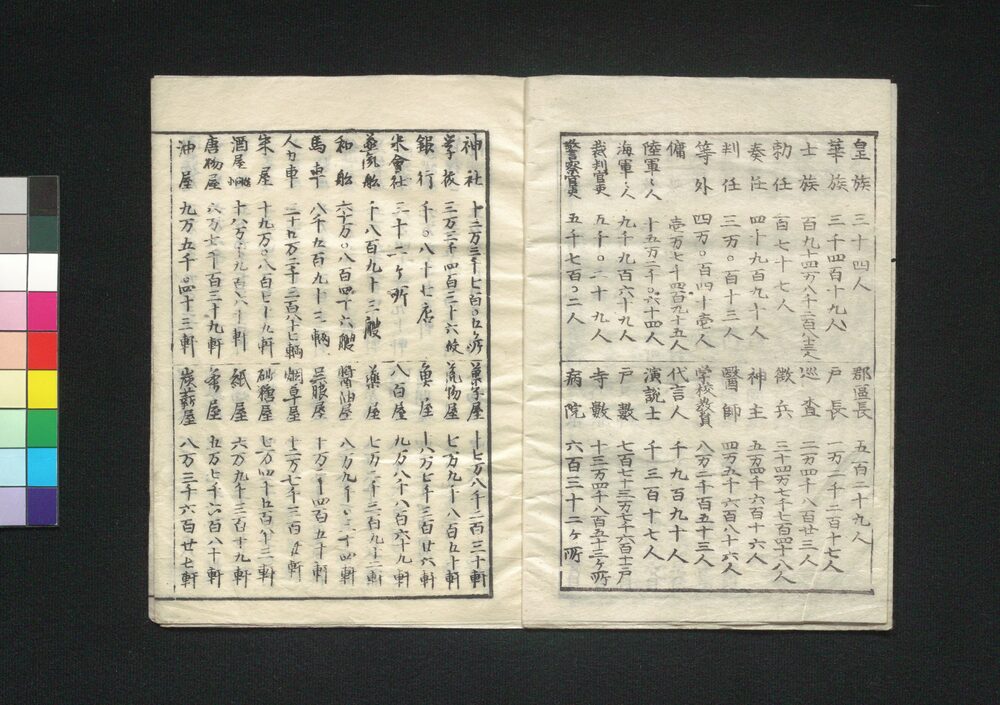 皇族 三十四人
華族 三千四百十九人
士族 百九十四万八千二百
勅任 百七十七人
奏任 四十九百九十人
判任 三万〇百十三人
等外 四万〇百四十壱人
傭 壱万七千四百九十五人
陸軍々人 十五万二千〇六十四人
海軍々人 九千九百六十九人
裁判官吏 五千〇二十九人
警察官吏 五千七百〇二人
郡區長 五百二十九人
戸長 一万一千二百十七人
巡査 二万四千八百廿三人
徴兵 二十四万七千七百四十八人
神主 五万四千六百十六人
醫師 四万五千六百八十六人
学校教員 八万二千百五十三人
代言人 千九百九十人
演説士 千三百十七人
戸數 七百七十三万七千六百十二戸
寺數 十三万四千八百五十三ヶ所
病院 六百三十二ヶ所
神社 十二万三千七百〇五ヶ所
学校 三万三千四百三十六校
銀行 千〇八十七店
米會社 三十二ヶ所
蒸気舩 千八百九十三艘
和舩 六十万〇八百四十六艘
馬車 八千九百九十三輌
人力車
宋屋
酒屋
唐物屋 六万七千百三十九軒
油屋 九万五千〇四十三軒
菓子屋 十七万八千二百三十軒
荒物屋 七万九千八百五十軒
魚屋 十八万七千三百廿六軒
八百屋 九万八千八百六十九軒
薬屋 七万千三百九十二軒
醤油屋
呉服屋 十万二千四百五十軒
烟草屋
砂糖屋
紙屋 六万九千三百十九軒
五万七千六百八十軒
炭薪屋 八万三千六百廿七軒